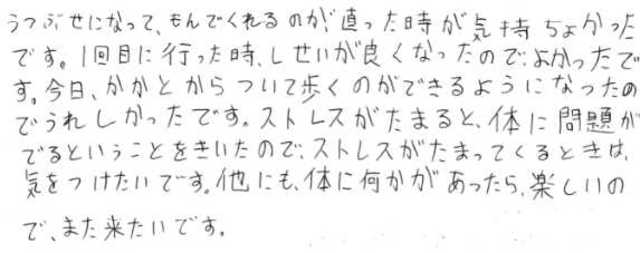 うつぶせになって、もんでくれるのが、直った時が気持ちよかった
です。1回目に行った時、しせいが良くなったので、よかったで
す。今日、かかとからついて歩くのができるようになったの
でうれしかったです。ストレスがたまると、体に問題が
でるということをきいたので、ストレスがたまってくるときは、
気をつけたいです。他にも、体に何かがあったら、楽しいの
で、また来たいです。